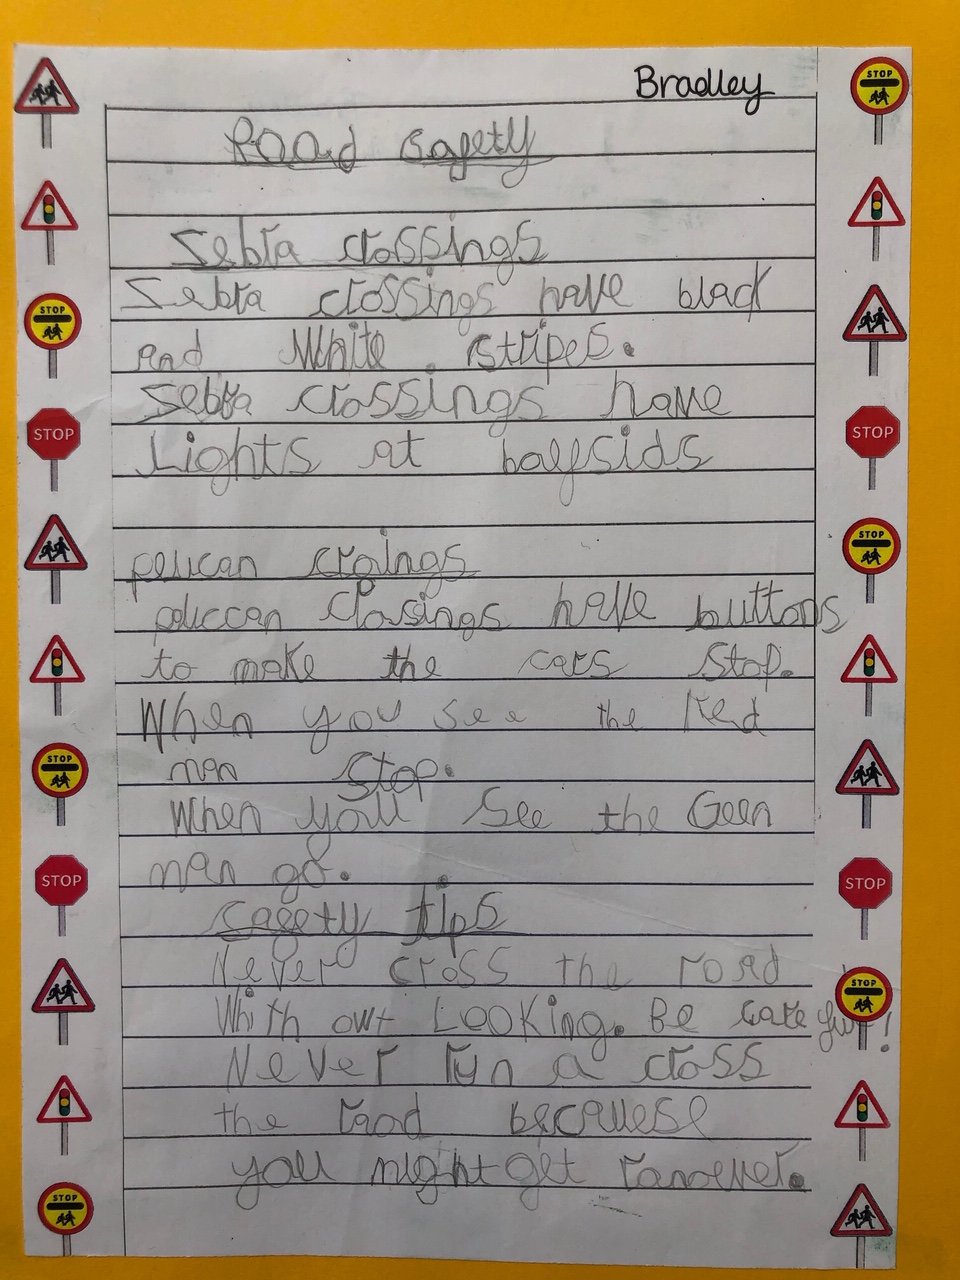 Bradley
Road Safety
Zebra crossings
Zebra crossings have black
and White stripes.
Zebra crossings have
Lights at boysids
pelican croings
peliccan Closings have buttons
to make the cars Stop.
When you see the Red
man Stop.
When you see the Geen
man go.
Safety tips
Never cross the road
Whith owt Looking. Be care ful!
Never run a cross
the raod becauese
you might get ranover.
STOP
STOP
STOP
STOP
STOP
STOP
STOP
STOP
STOP
STOP